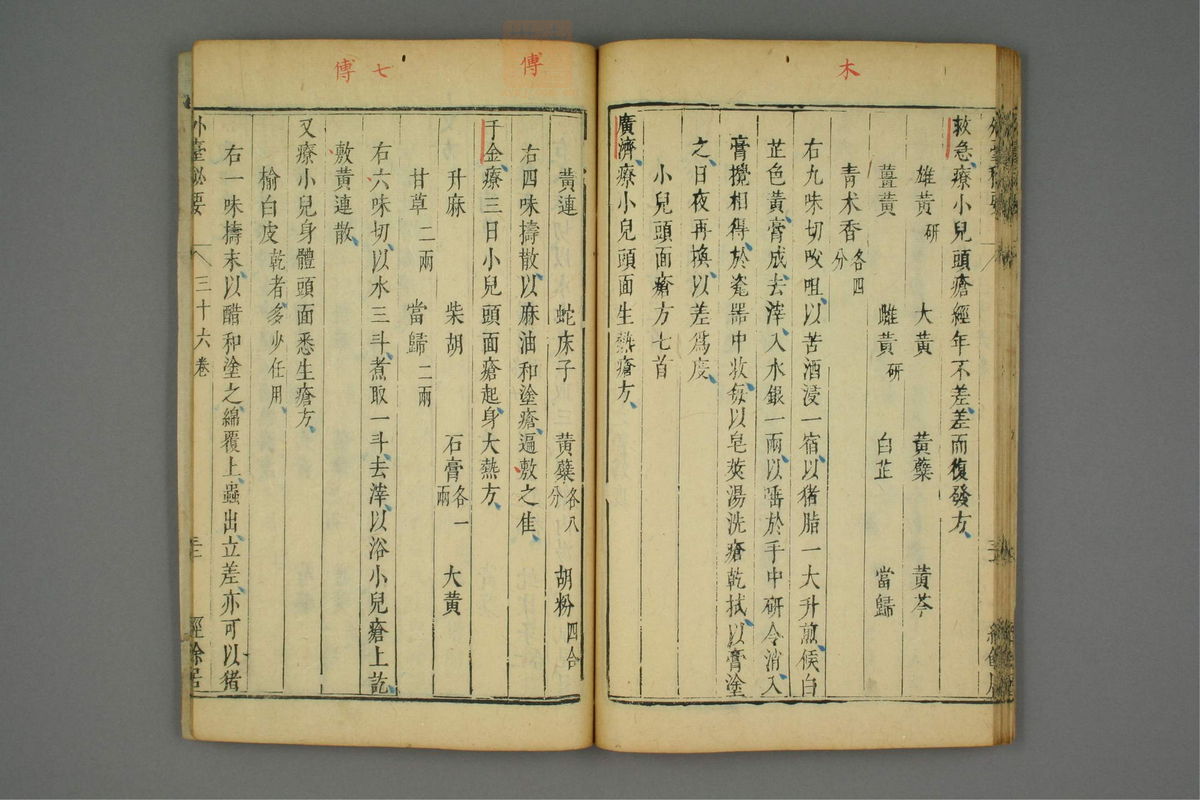 木
救急療小兒頭瘡經年不差差而復發方
雄黃研 大黃 黃蘗 黃芩
薑黃 雌黃研 白芷 當歸
青木香各四分
右九味切㕮咀以苦酒浸一宿以猪脂一大升煎候白
芷色黃膏成去滓入水銀一兩以唾於手中研令消入
膏攪相得於瓷器中收每以皂莢湯洗瘡乾拭以膏塗
之日夜再換以差爲度
小兒頭面瘡方七首
廣濟療小兒頭面生熱瘡方
傅
七
傅
黃連 蛇床子 黃蘗各八分 胡粉四合
右四味擣散以麻油和塗瘡遍敷之佳
千金療三日小兒頭面瘡起身大熱方
升麻 柴胡 石膏各一兩 大黃
甘草二兩 當歸二兩
右六味切以水三斗煮取一斗去滓以浴小兒瘡上訖
敷黃連散
又療小兒身體頭面悉生瘡方
榆白皮乾者多少任用
右一味擣末以醋和塗之綿覆上蟲出立差亦可以猪
外臺秘要 三十六卷 經餘居